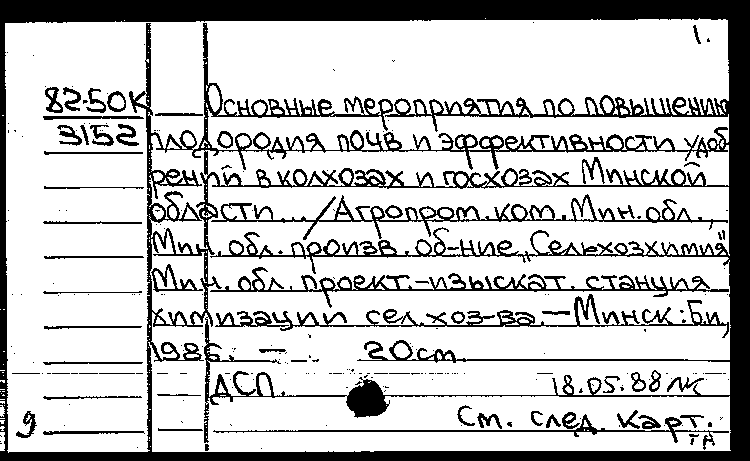 1.
82-50К Основные мероприятия по повышению
3152 плодородия почв и эффективности удоб
рений в колхозах и госхозах Минской
области... / Агропром. ком. Мин. обл.,
Мин. обл. произв. об-ние „Сельхозхимия",
Мин. обл. проект.-изыскат. станция
химизации сел. хоз-ва. — Минск: Би,
1986. — 20 см.
ДСП. 18.05.88 лк
9 См. след. карт.
ТН